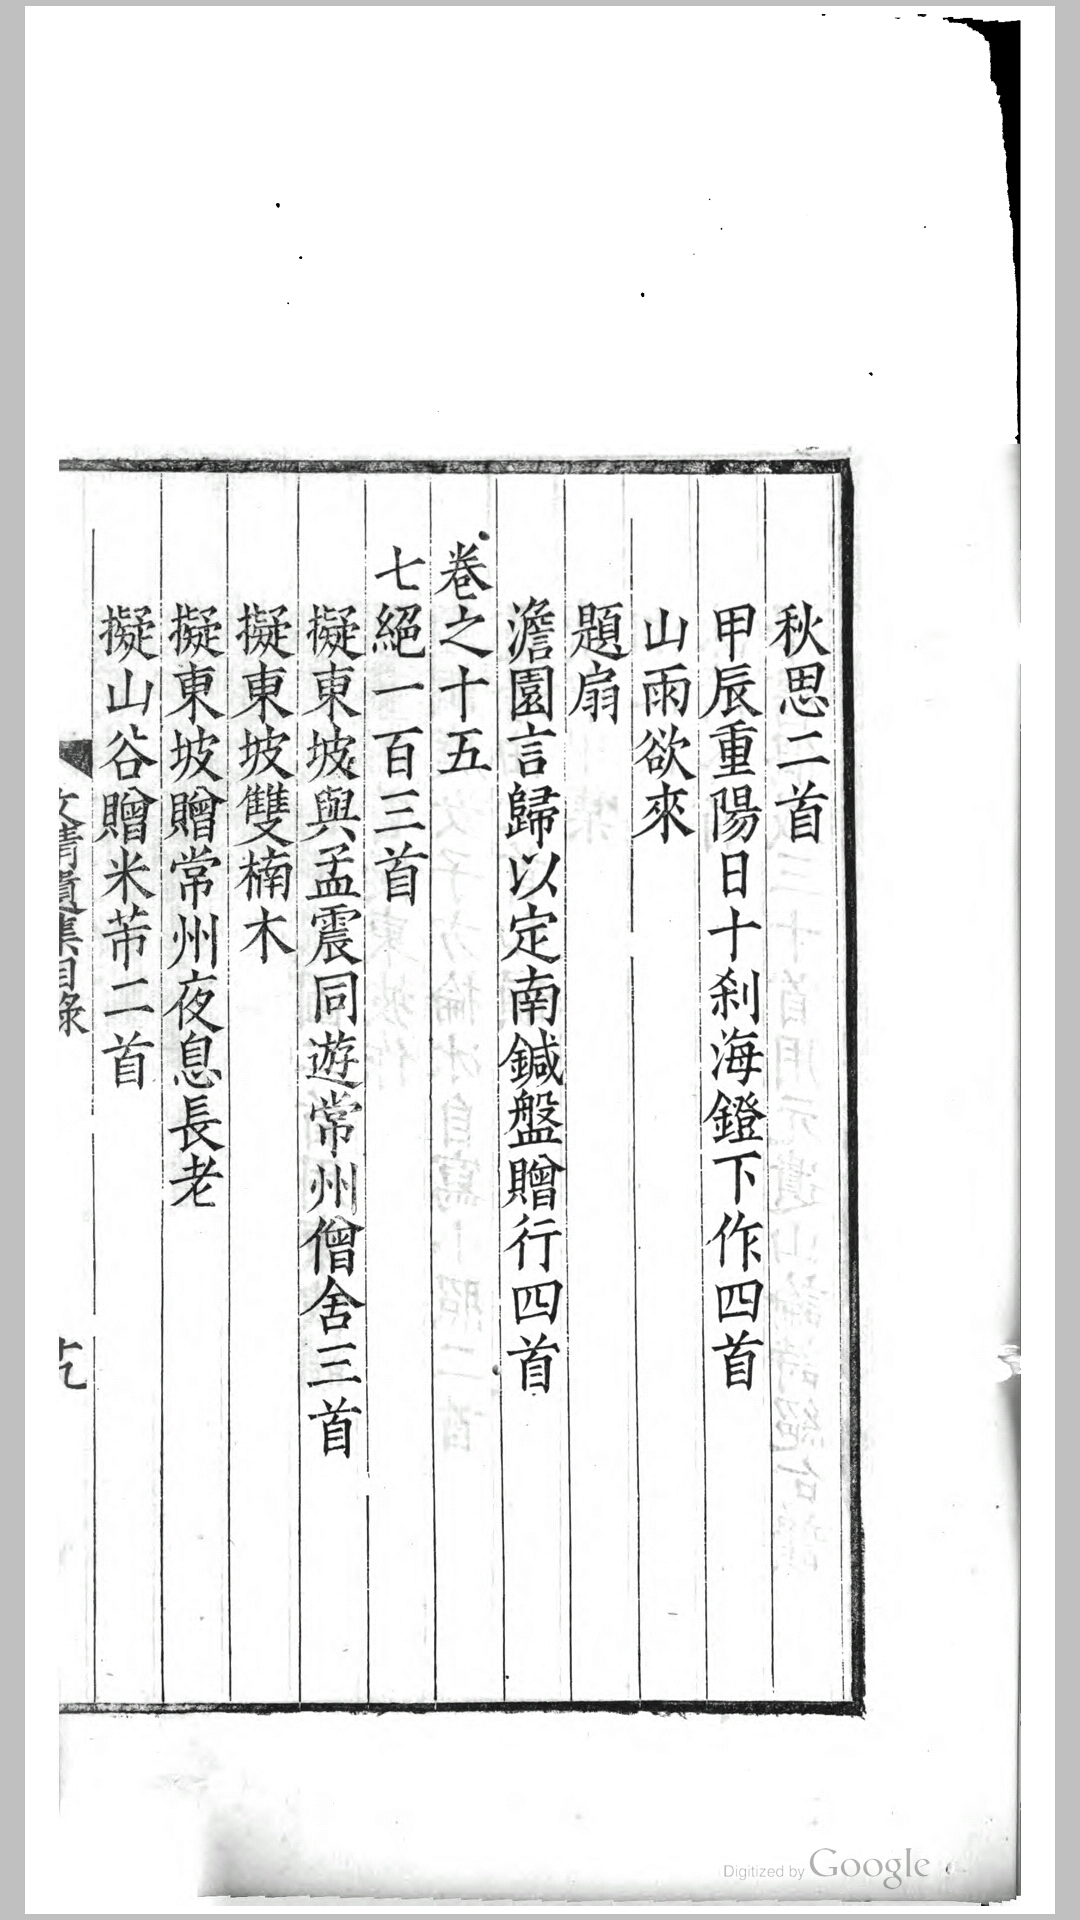 秋思二首
甲辰重陽日十刹海鐙下作四首
山雨欲來
題扇
澹園言歸以定南鍼盤贈行四首
卷之十五
七絕一百三首
擬東坡與孟震同遊常州僧舍三首
擬東坡雙楠木
擬東坡贈常州夜息長老
擬山谷贈米芾二首
遺集目錄
Digitized by Google